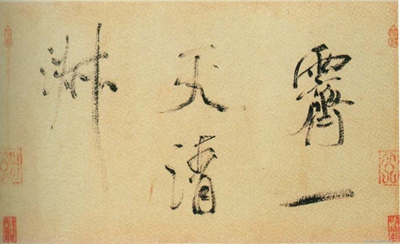 霽一
天清
淑